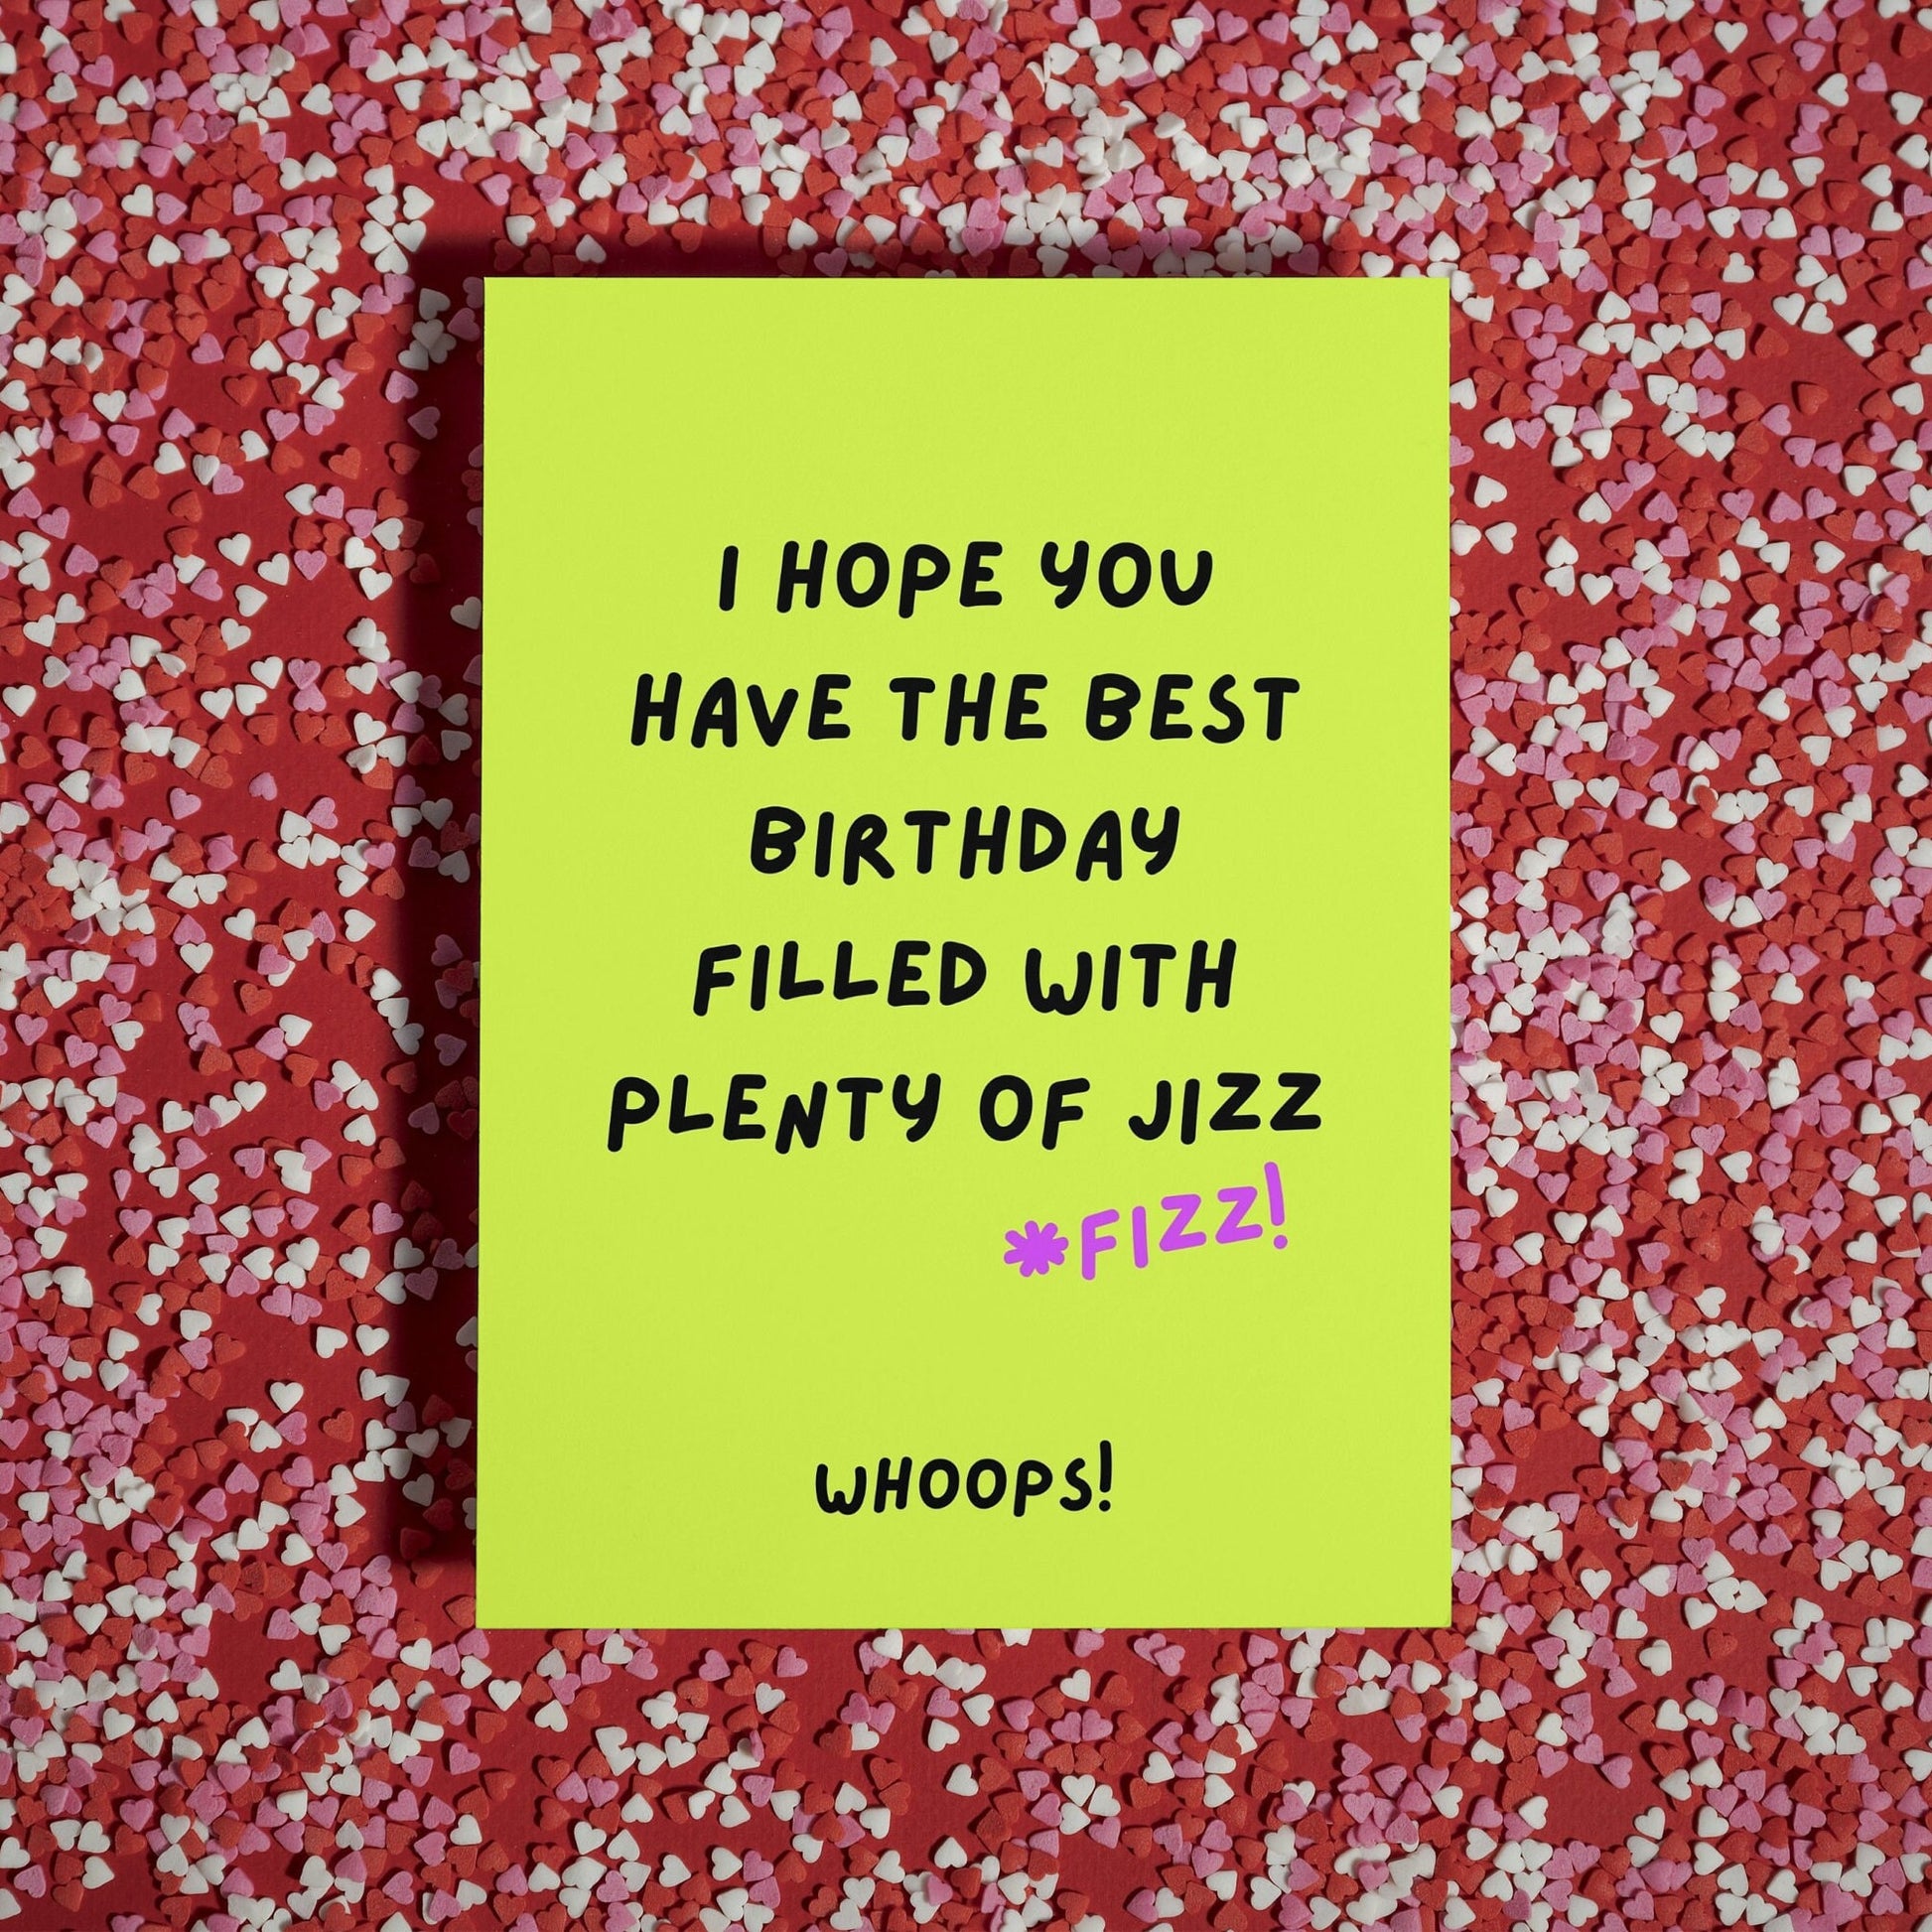 I HOPE YOU
HAVE THE BEST
BIRTHDAY
FILLED WITH
PLENTY OF JIZZ
*FIZZ!
WHOOPS!